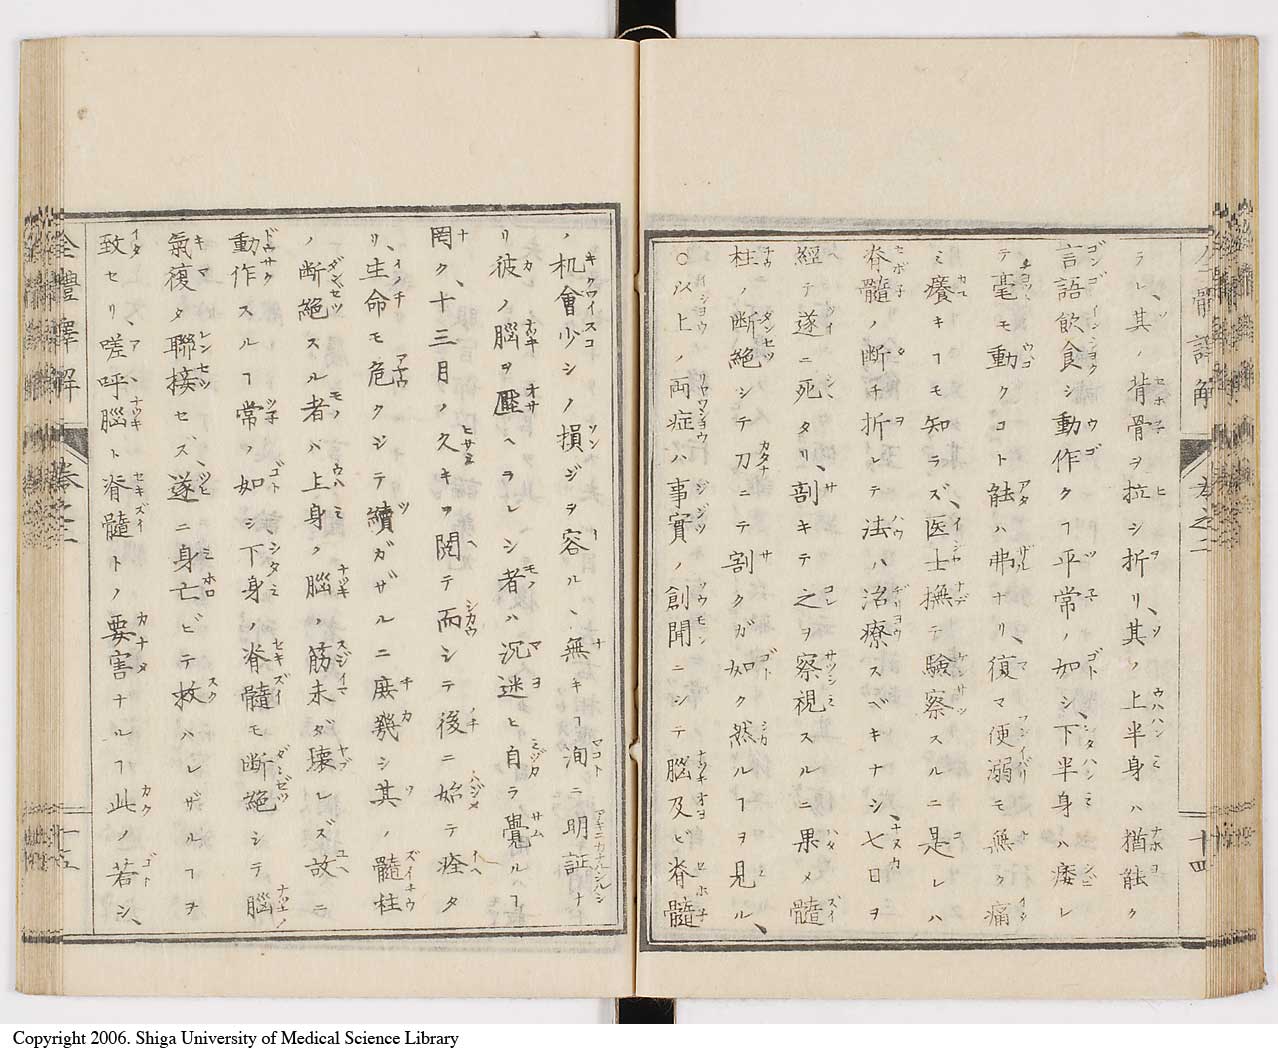 ラレ、其ノ背骨ヲ拉シ折リ、其ノ上半身ハ猶能ク
言語飲食シ動作クヿ平常ノ如シ、下半身ハ痿レ
テ毫モ動クコト能ハ弗ナリ、復マ便溺モ無ク痛
ミ癢キヿモ知ラズ、医士撫テ験察スルニ是レハ
脊髓ノ断チ折レテ法ハ治療スベキナシ七日ヲ
經テ遂ニ死タリ、剖キテ之ヲ察視スルニ果メ髓
柱ノ断絶シテ刀ニテ割クガ如ク然ルヿヲ見ル、
○以上ノ両症ハ事實ノ創聞ニシテ腦及ビ脊髓
ノ机會少シノ損ジヲ容ル、無キヿ洵ニ明証ナ
リ彼ノ腦ヲ壓ヘラレシ者ハ沉迷ヒ自ラ覺ルハヿ
罔ク、十三月ノ久キヲ閲テ而シテ後ニ始テ痊タ
リ、生命モ危クシテ續ガザルニ庶幾シ其ノ髓柱
ノ断絶スル者ハ上身ノ腦ノ筋未ダ壊レズ故ニ
動作スルヿ常ノ如シ下身ノ脊髓モ断絶シテ腦
氣復タ聯接セズ、遂ニ身亡ビテ救ハレザルヿヲ
致セリ嗟呼腦ト脊髓トノ要害ナルヿ此ノ若シ、
全體譯解 巻之二 十五
巻之二 十四
Copyright 2006. Shiga University of Medical Science Library